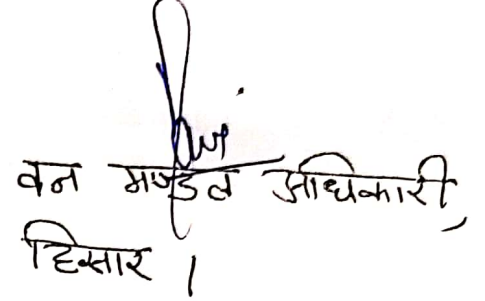 वन मण्डल अधिकारी,
हिसार ।